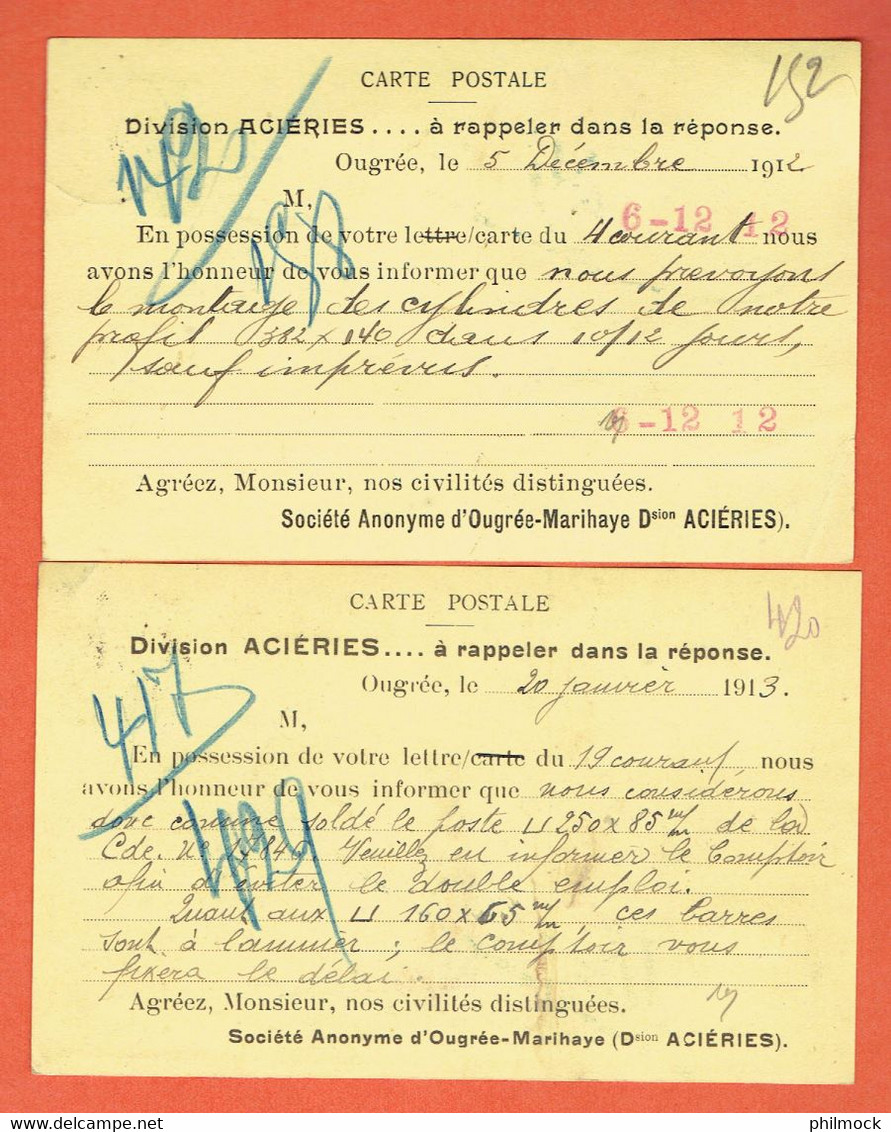 CARTE POSTALE
152
Division ACIÉRIES .... à rappeler dans la réponse.
1420
Ougrée, le 5 Décembre 1912
M,
6-12 12
En possession de votre lettre/carte du 4 courant nous
158
avons l'honneur de vous informer que nous prevoyons
le montage des cylindres de notre
profil 382 x 140 dans 10/12 jours,
sauf imprévus.
6-12 12
Agréez, Monsieur, nos civilités distinguées.
Société Anonyme d'Ougrée-Marihaye Dsion ACIÉRIES).
CARTE POSTALE
420
Division ACIÉRIES .... à rappeler dans la réponse.
417
Ougrée, le 20 janvier 1913.
M,
En possession de votre lettre/carte du 19 courant, nous
avons l'honneur de vous informer que nous considérons
donc comme soldé le poste ⊔ 250 x 85 m/m de la
Cde. No 17840. Veuillez en informer le Comptoir
afin d'éviter le double emploi.
Quant aux ⊔ 160 x 65 m/m, ces barres
sont à laminer ; le comptoir vous
fixera le délai.
Agréez, Monsieur, nos civilités distinguées.
Société Anonyme d'Ougrée-Marihaye (Dsion ACIÉRIES).
philmock